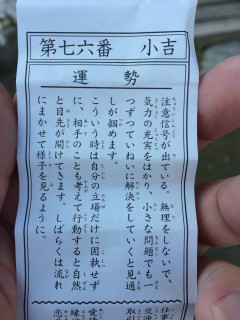 第七六番 小吉
運勢
注意信号が出ている。無理をしないで、
気力の充実をはかり、小さな問題でも一
つずつていねいに解決をしていくと見通
しが掴めます。
こういう時は自分の立場だけに固執せず
に、相手のことも考えて行動すると自然
と目先が開けてきます。しばらくは流れ
にまかせて様子を見るように。
仕事
交渉
取引